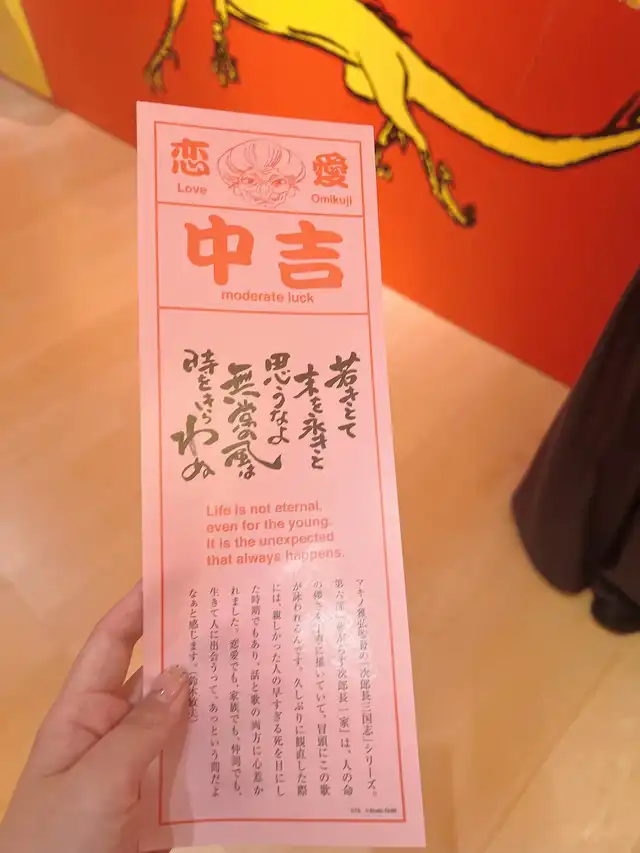 恋愛
Love
Omikuji
中吉
moderate luck
若きとて
末を永きと
思うなよ
無常の風は
時をきらわぬ
Life is not eternal,
even for the young.
It is the unexpected
that always happens.
マキノ雅弘監督の「次郎長三国志」シリーズ。
第六部
は、人の命
の儚さを
に描いていて、冒頭にこの歌
が詠われるんです。久しぶりに観直した際
には、親しかった人の早すぎる死を目にし
た時期でもあり、話と歌の両方に心惹か
れました。恋愛でも、家族でも、仲間でも、
生きて人に出会うって、あっという間だよ
なぁと感じます。（鈴木敏夫）